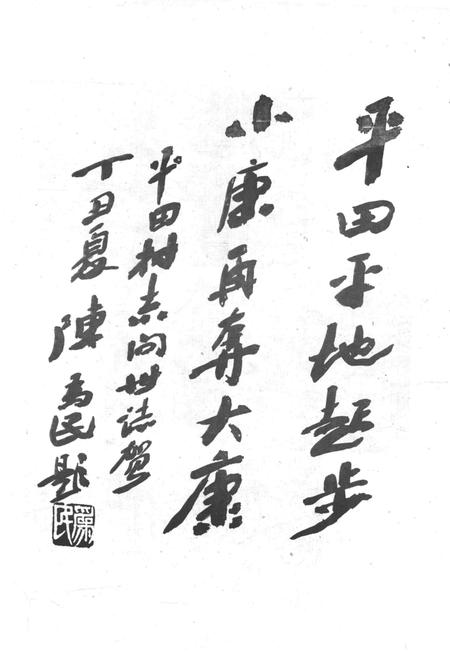 平田平地起步
小康再奔大康
平田村志问世誌贺
丁丑夏 陳为民题